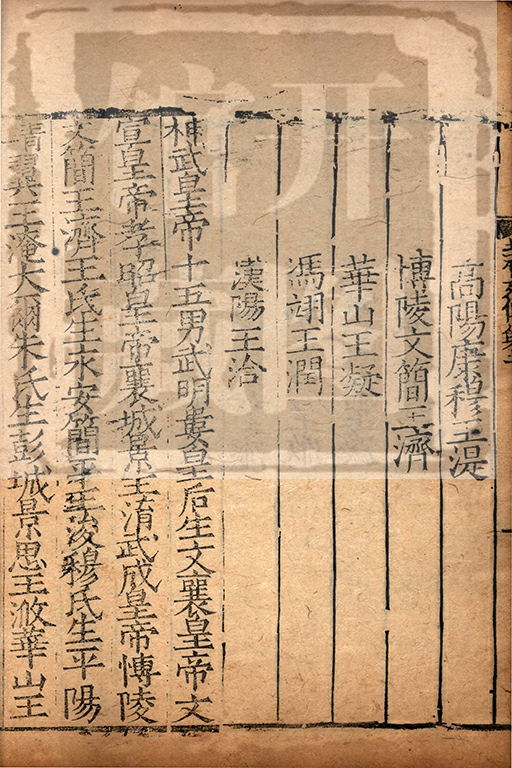 高陽康穆王湜
博陵文簡王濟
華山王凝
馮翊王潤
漢陽王洽
神武皇帝十五男武明婁皇后生文襄皇帝文
宣皇帝孝昭皇帝襄城景王淯武成皇帝博陵
文簡王濟王氏生永安簡平王浚穆氏生平陽
靖翼王淹大爾朱氏生彭城景思王浟華山王